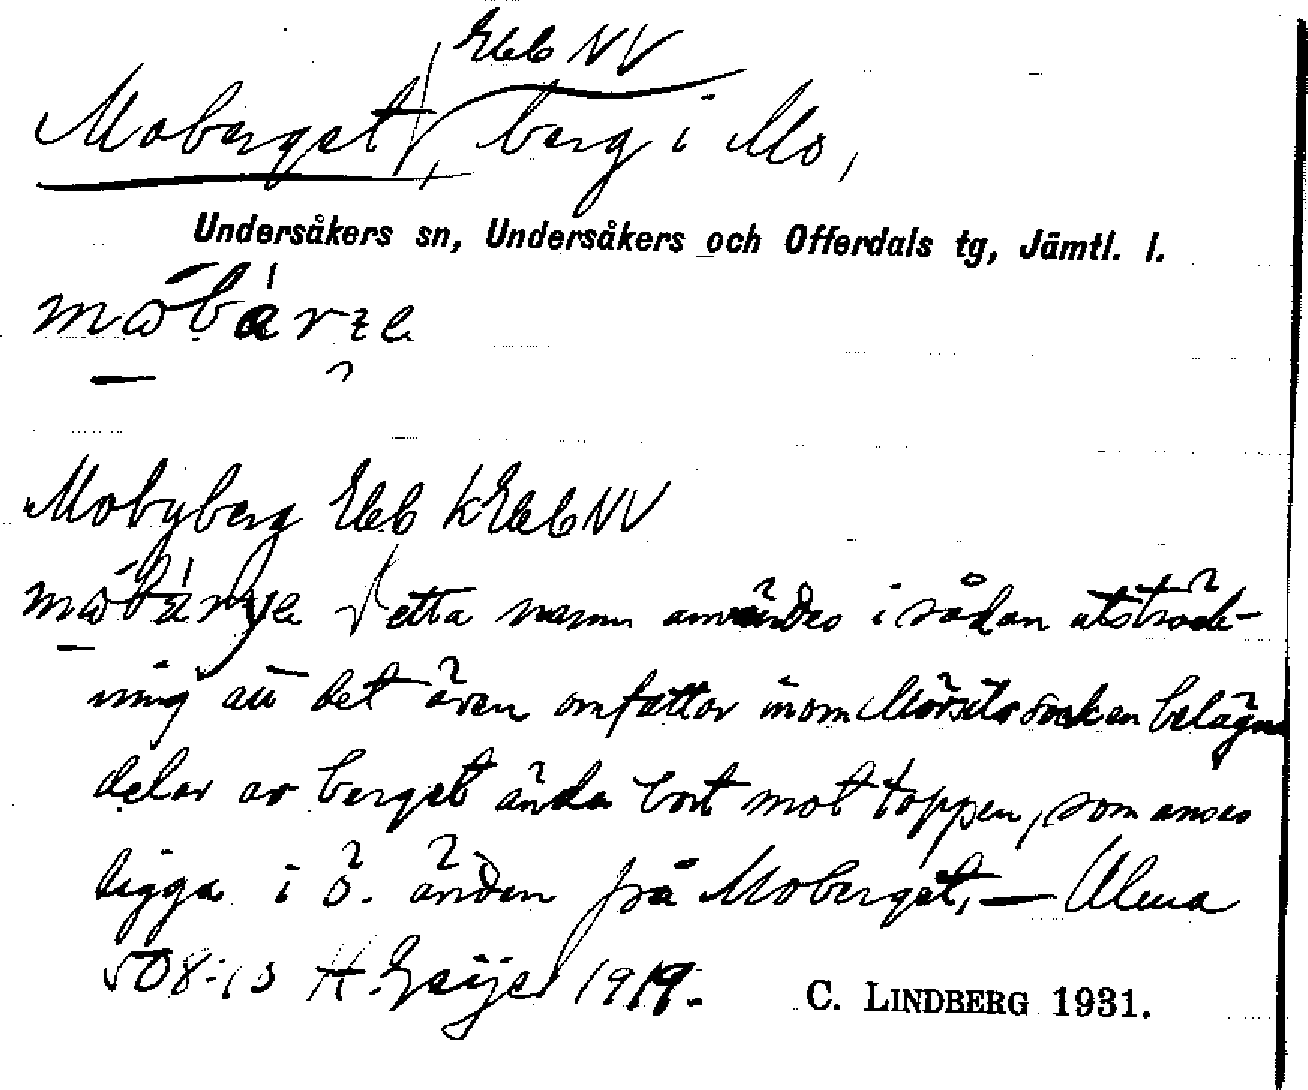 Ekb NV
Moberget, berg i Mo,
Undersåkers sn, Undersåkers och Offerdals tg, Jämtl. l.
Mobyberg Ekb kEkbNV
Detta namn användes i sådan utsträck-
ning att det även omfattar inom Mörsils socken belägna
delar av berget ända bort mot toppen, som anses
ligga i ö. änden på Moberget. — Alma
508:13 H. Geijer 1919. C. LINDBERG 1931.